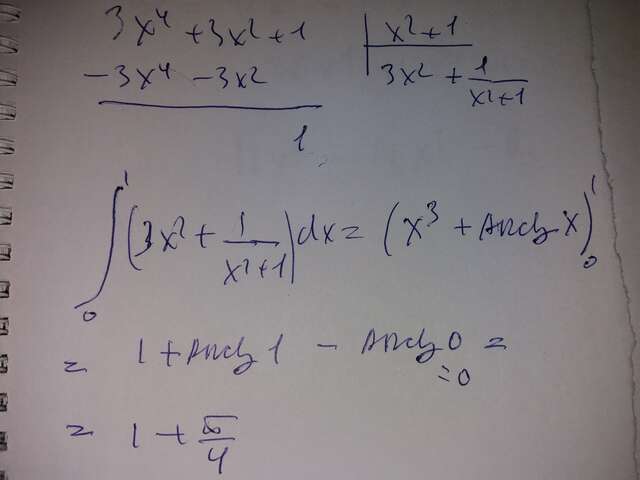 3x⁴ + 3x² + 1 | x² + 1
-3x⁴ - 3x² 3x² + 1/(x²+1)
1
∫₀¹ (3x² + 1/(x²+1)) dx = (x³ + arctg x)₀¹
= 1 + arctg 1 - arctg 0 =
=0
= 1 + π/4